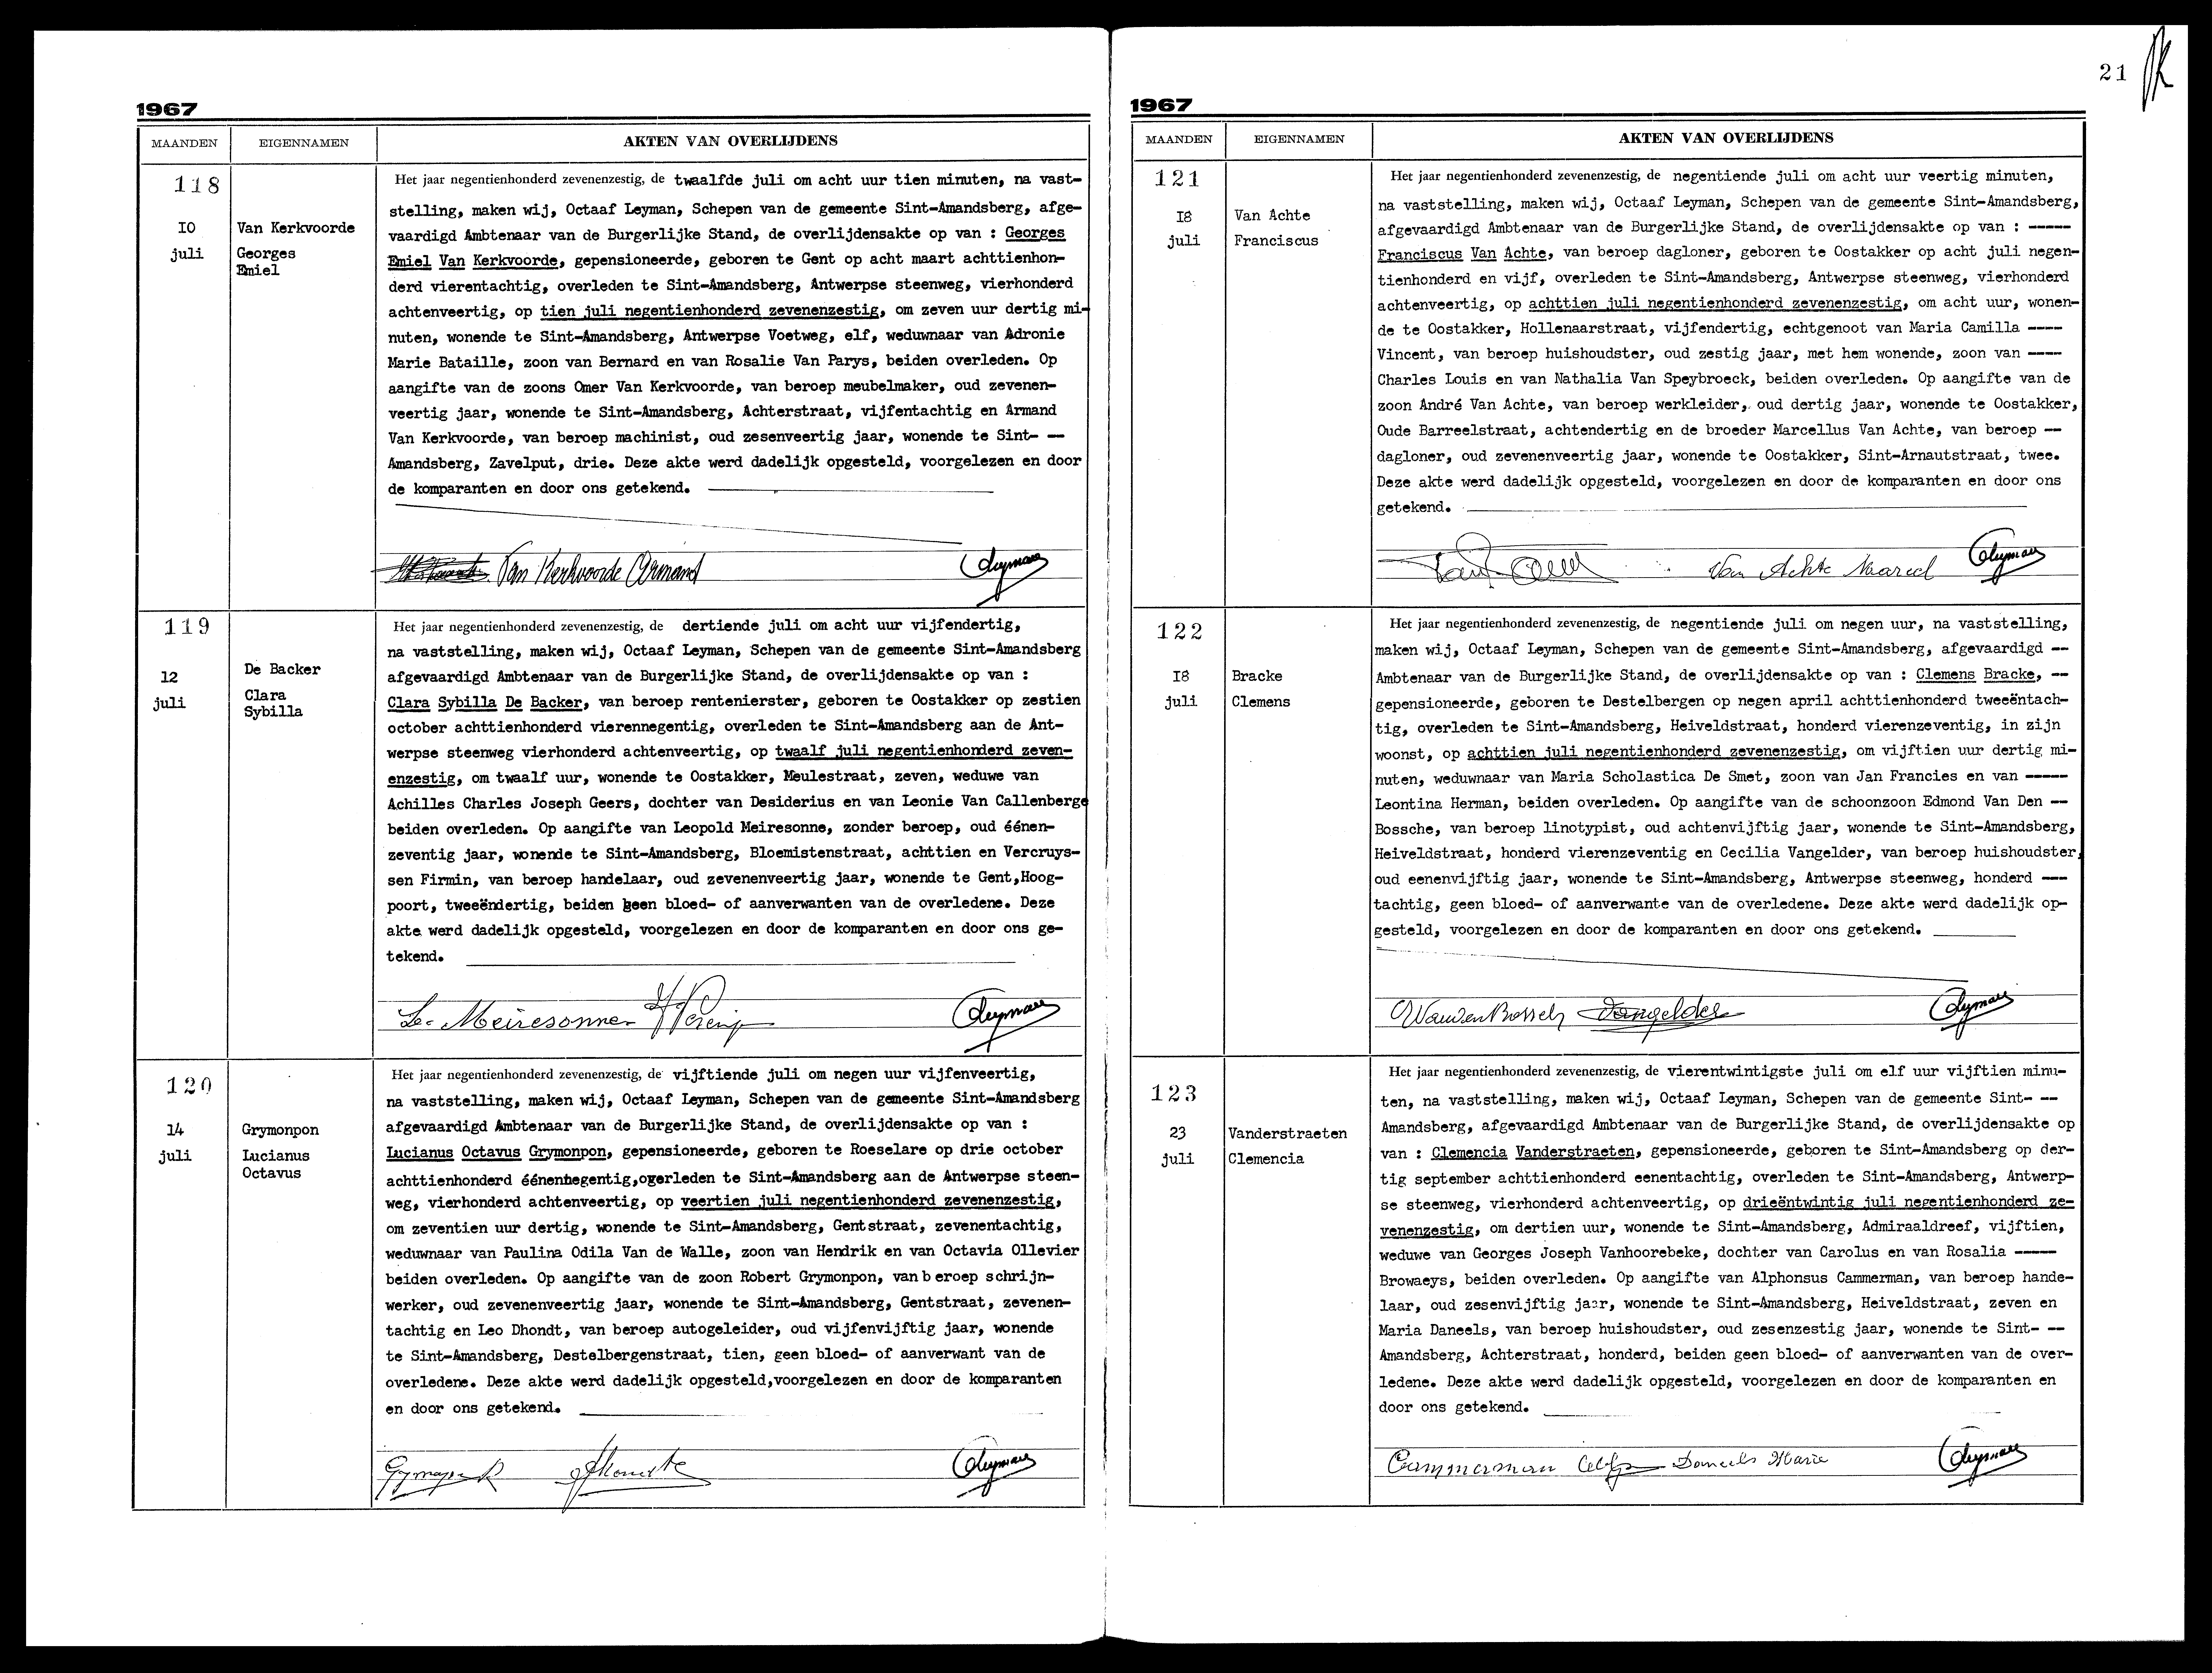 1967
MAANDEN EIGENNAMEN AKTEN VAN OVERLIJDENS
118
10
juli
Van Kerkvoorde
Georges
Emiel
Het jaar negentienhonderd zevenenzestig, de twaalfde juli om acht uur tien minuten, na vast-
stelling, maken wij, Octaaf Leyman, Schepen van de gemeente Sint-Amandsberg, afge-
vaardigd Ambtenaar van de Burgerlijke Stand, de overlijdensakte op van : Georges
Emiel Van Kerkvoorde, gepensioneerde, geboren te Gent op acht maart achttienhon-
derd vierentachtig, overleden te Sint-Amandsberg, Antwerpse steenweg, vierhonderd
achtenveertig, op tien juli negentienhonderd zevenenzestig, om zeven uur dertig mi-
nuten, wonende te Sint-Amandsberg, Antwerpse Voetweg, elf, weduwnaar van Adronie
Marie Bataille, zoon van Bernard en van Rosalie Van Parys, beiden overleden. Op
aangifte van de zoons Omer Van Kerkvoorde, van beroep meubelmaker, oud zevenen-
veertig jaar, wonende te Sint-Amandsberg, Achterstraat, vijfentachtig en Armand
Van Kerkvoorde, van beroep machinist, oud zesenveertig jaar, wonende te Sint- --
Amandsberg, Zavelput, drie. Deze akte werd dadelijk opgesteld, voorgelezen en door
de komparanten en door ons getekend.
Van Kerkvoorde Armand OLeyman
119
12
juli
De Backer
Clara
Sybilla
Het jaar negentienhonderd zevenenzestig, de dertiende juli om acht uur vijfendertig,
na vaststelling, maken wij, Octaaf Leyman, Schepen van de gemeente Sint-Amandsberg
afgevaardigd Ambtenaar van de Burgerlijke Stand, de overlijdensakte op van :
Clara Sybilla De Backer, van beroep rentenierster, geboren te Oostakker op zestien
october achttienhonderd vierennegentig, overleden te Sint-Amandsberg aan de Ant-
werpse steenweg vierhonderd achtenveertig, op twaalf juli negentienhonderd zeven-
enzestig, om twaalf uur, wonende te Oostakker, Meulestraat, zeven, weduwe van
Achilles Charles Joseph Geers, dochter van Desiderius en van Leonie Van Callenberge
beiden overleden. Op aangifte van Leopold Meiresonne, zonder beroep, oud éénen-
zeventig jaar, wonende te Sint-Amandsberg, Bloemistenstraat, achttien en Vercruys-
sen Firmin, van beroep handelaar, oud zevenenveertig jaar, wonende te Gent,Hoog-
poort, tweeëndertig, beiden geen bloed- of aanverwanten van de overledene. Deze
akte werd dadelijk opgesteld, voorgelezen en door de komparanten en door ons ge-
tekend.
Le Meiresonne OLeyman
120
14
juli
Grymonpon
Lucianus
Octavus
Het jaar negentienhonderd zevenenzestig, de vijftiende juli om negen uur vijfenveertig,
na vaststelling, maken wij, Octaaf Leyman, Schepen van de gemeente Sint-Amandsberg
afgevaardigd Ambtenaar van de Burgerlijke Stand, de overlijdensakte op van :
Lucianus Octavus Grymonpon, gepensioneerde, geboren te Roeselare op drie october
achttienhonderd éénennegentig,overleden te Sint-Amandsberg aan de Antwerpse steen-
weg, vierhonderd achtenveertig, op veertien juli negentienhonderd zevenenzestig,
om zeventien uur dertig, wonende te Sint-Amandsberg, Gentstraat, zevenentachtig,
weduwnaar van Paulina Odila Van de Walle, zoon van Hendrik en van Octavia Ollevier
beiden overleden. Op aangifte van de zoon Robert Grymonpon, van beroep schrijn-
werker, oud zevenenveertig jaar, wonende te Sint-Amandsberg, Gentstraat, zevenen-
tachtig en Leo Dhondt, van beroep autogeleider, oud vijfenvijftig jaar, wonende
te Sint-Amandsberg, Destelbergenstraat, tien, geen bloed- of aanverwant van de
overledene. Deze akte werd dadelijk opgesteld,voorgelezen en door de komparanten
en door ons getekend.
OLeyman
21
1967
MAANDEN EIGENNAMEN AKTEN VAN OVERLIJDENS
121
18
juli
Van Achte
Franciscus
Het jaar negentienhonderd zevenenzestig, de negentiende juli om acht uur veertig minuten,
na vaststelling, maken wij, Octaaf Leyman, Schepen van de gemeente Sint-Amandsberg,
afgevaardigd Ambtenaar van de Burgerlijke Stand, de overlijdensakte op van : -----
Franciscus Van Achte, van beroep dagloner, geboren te Oostakker op acht juli negen-
tienhonderd en vijf, overleden te Sint-Amandsberg, Antwerpse steenweg, vierhonderd
achtenveertig, op achttien juli negentienhonderd zevenenzestig, om acht uur, wonen-
de te Oostakker, Hollenaarstraat, vijfendertig, echtgenoot van Maria Camilla ----
Vincent, van beroep huishoudster, oud zestig jaar, met hem wonende, zoon van ----
Charles Louis en van Nathalia Van Speybroeck, beiden overleden. Op aangifte van de
zoon André Van Achte, van beroep werkleider, oud dertig jaar, wonende te Oostakker,
Oude Barreelstraat, achtendertig en de broeder Marcellus Van Achte, van beroep --
dagloner, oud zevenenveertig jaar, wonende te Oostakker, Sint-Arnautstraat, twee.
Deze akte werd dadelijk opgesteld, voorgelezen en door de komparanten en door ons
getekend.
Van Achte Marcel OLeyman
122
18
juli
Bracke
Clemens
Het jaar negentienhonderd zevenenzestig, de negentiende juli om negen uur, na vaststelling,
maken wij, Octaaf Leyman, Schepen van de gemeente Sint-Amandsberg, afgevaardigd --
Ambtenaar van de Burgerlijke Stand, de overlijdensakte op van : Clemens Bracke, --
gepensioneerde, geboren te Destelbergen op negen april achttienhonderd tweeëntach-
tig, overleden te Sint-Amandsberg, Heiveldstraat, honderd vierenzeventig, in zijn
woonst, op achttien juli negentienhonderd zevenenzestig, om vijftien uur dertig mi-
nuten, weduwnaar van Maria Scholastica De Smet, zoon van Jan Francies en van -----
Leontina Herman, beiden overleden. Op aangifte van de schoonzoon Edmond Van Den --
Bossche, van beroep linotypist, oud achtenvijftig jaar, wonende te Sint-Amandsberg,
Heiveldstraat, honderd vierenzeventig en Cecilia Vangelder, van beroep huishoudster,
oud eenenvijftig jaar, wonende te Sint-Amandsberg, Antwerpse steenweg, honderd ---
tachtig, geen bloed- of aanverwante van de overledene. Deze akte werd dadelijk op-
gesteld, voorgelezen en door de komparanten en door ons getekend.
Vangelder OLeyman
123
23
juli
Vanderstraeten
Clemencia
Het jaar negentienhonderd zevenenzestig, de vierentwintigste juli om elf uur vijftien minu-
ten, na vaststelling, maken wij, Octaaf Leyman, Schepen van de gemeente Sint- --
Amandsberg, afgevaardigd Ambtenaar van de Burgerlijke Stand, de overlijdensakte op
van : Clemencia Vanderstraeten, gepensioneerde, geboren te Sint-Amandsberg op der-
tig september achttienhonderd eenentachtig, overleden te Sint-Amandsberg, Antwerp-
se steenweg, vierhonderd achtenveertig, op drieëntwintig juli negentienhonderd ze-
venenzestig, om dertien uur, wonende te Sint-Amandsberg, Admiraaldreef, vijftien,
weduwe van Georges Joseph Vanhoorebeke, dochter van Carolus en van Rosalia -----
Browaeys, beiden overleden. Op aangifte van Alphonsus Cammerman, van beroep hande-
laar, oud zesenvijftig jaar, wonende te Sint-Amandsberg, Heiveldstraat, zeven en
Maria Daneels, van beroep huishoudster, oud zesenzestig jaar, wonende te Sint- --
Amandsberg, Achterstraat, honderd, beiden geen bloed- of aanverwanten van de over-
ledene. Deze akte werd dadelijk opgesteld, voorgelezen en door de komparanten en
door ons getekend.
Cammerman Daneels Marie OLeyman